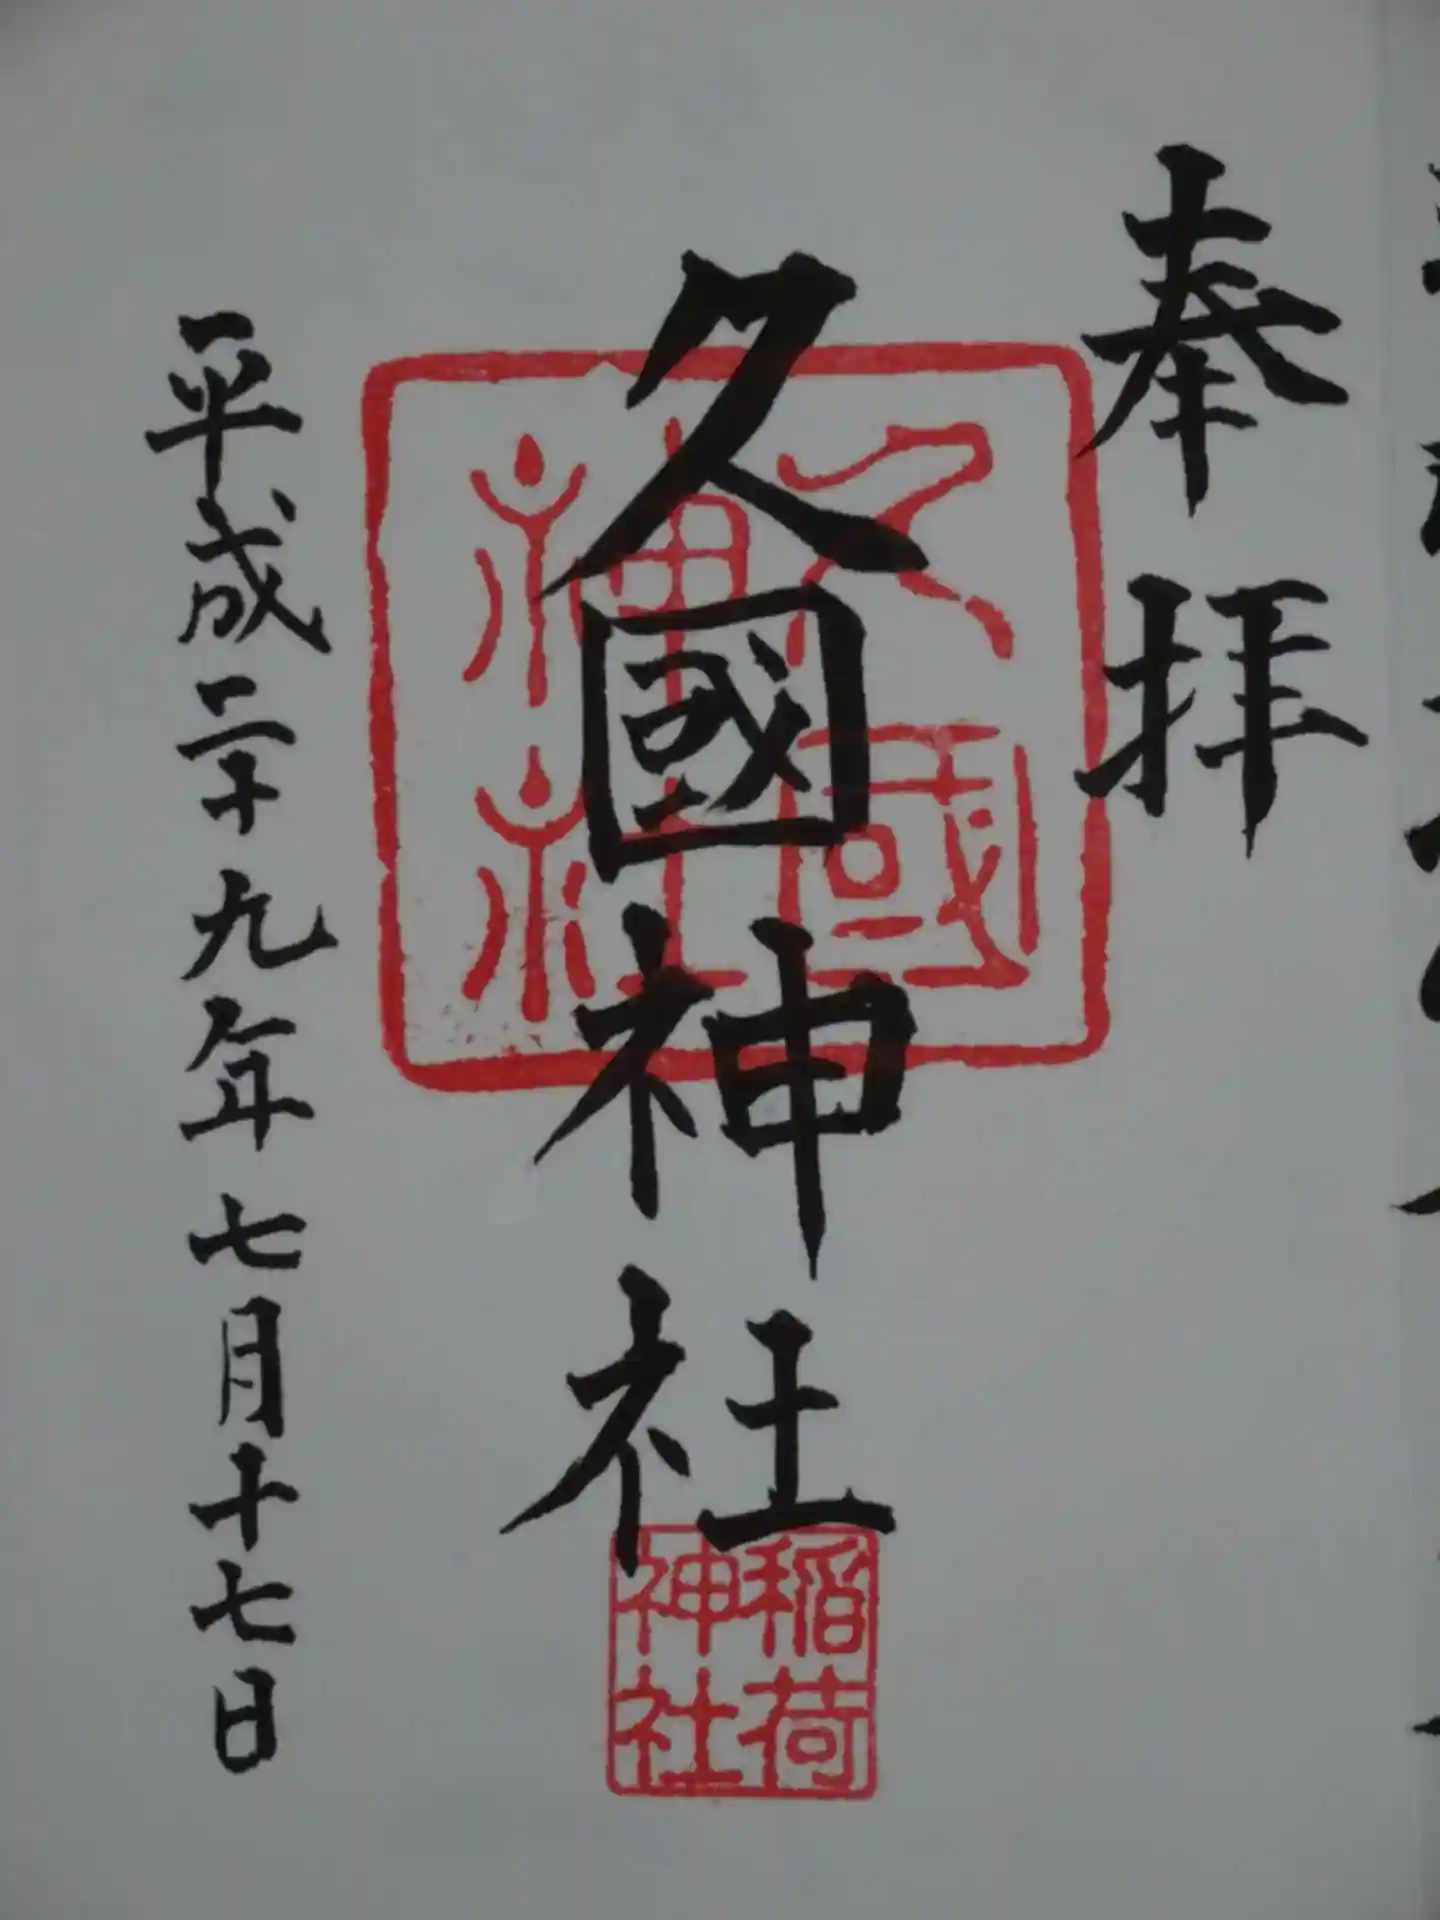 奉拝
久國神社
久國神社
稲荷神社
平成二十九年七月十七日